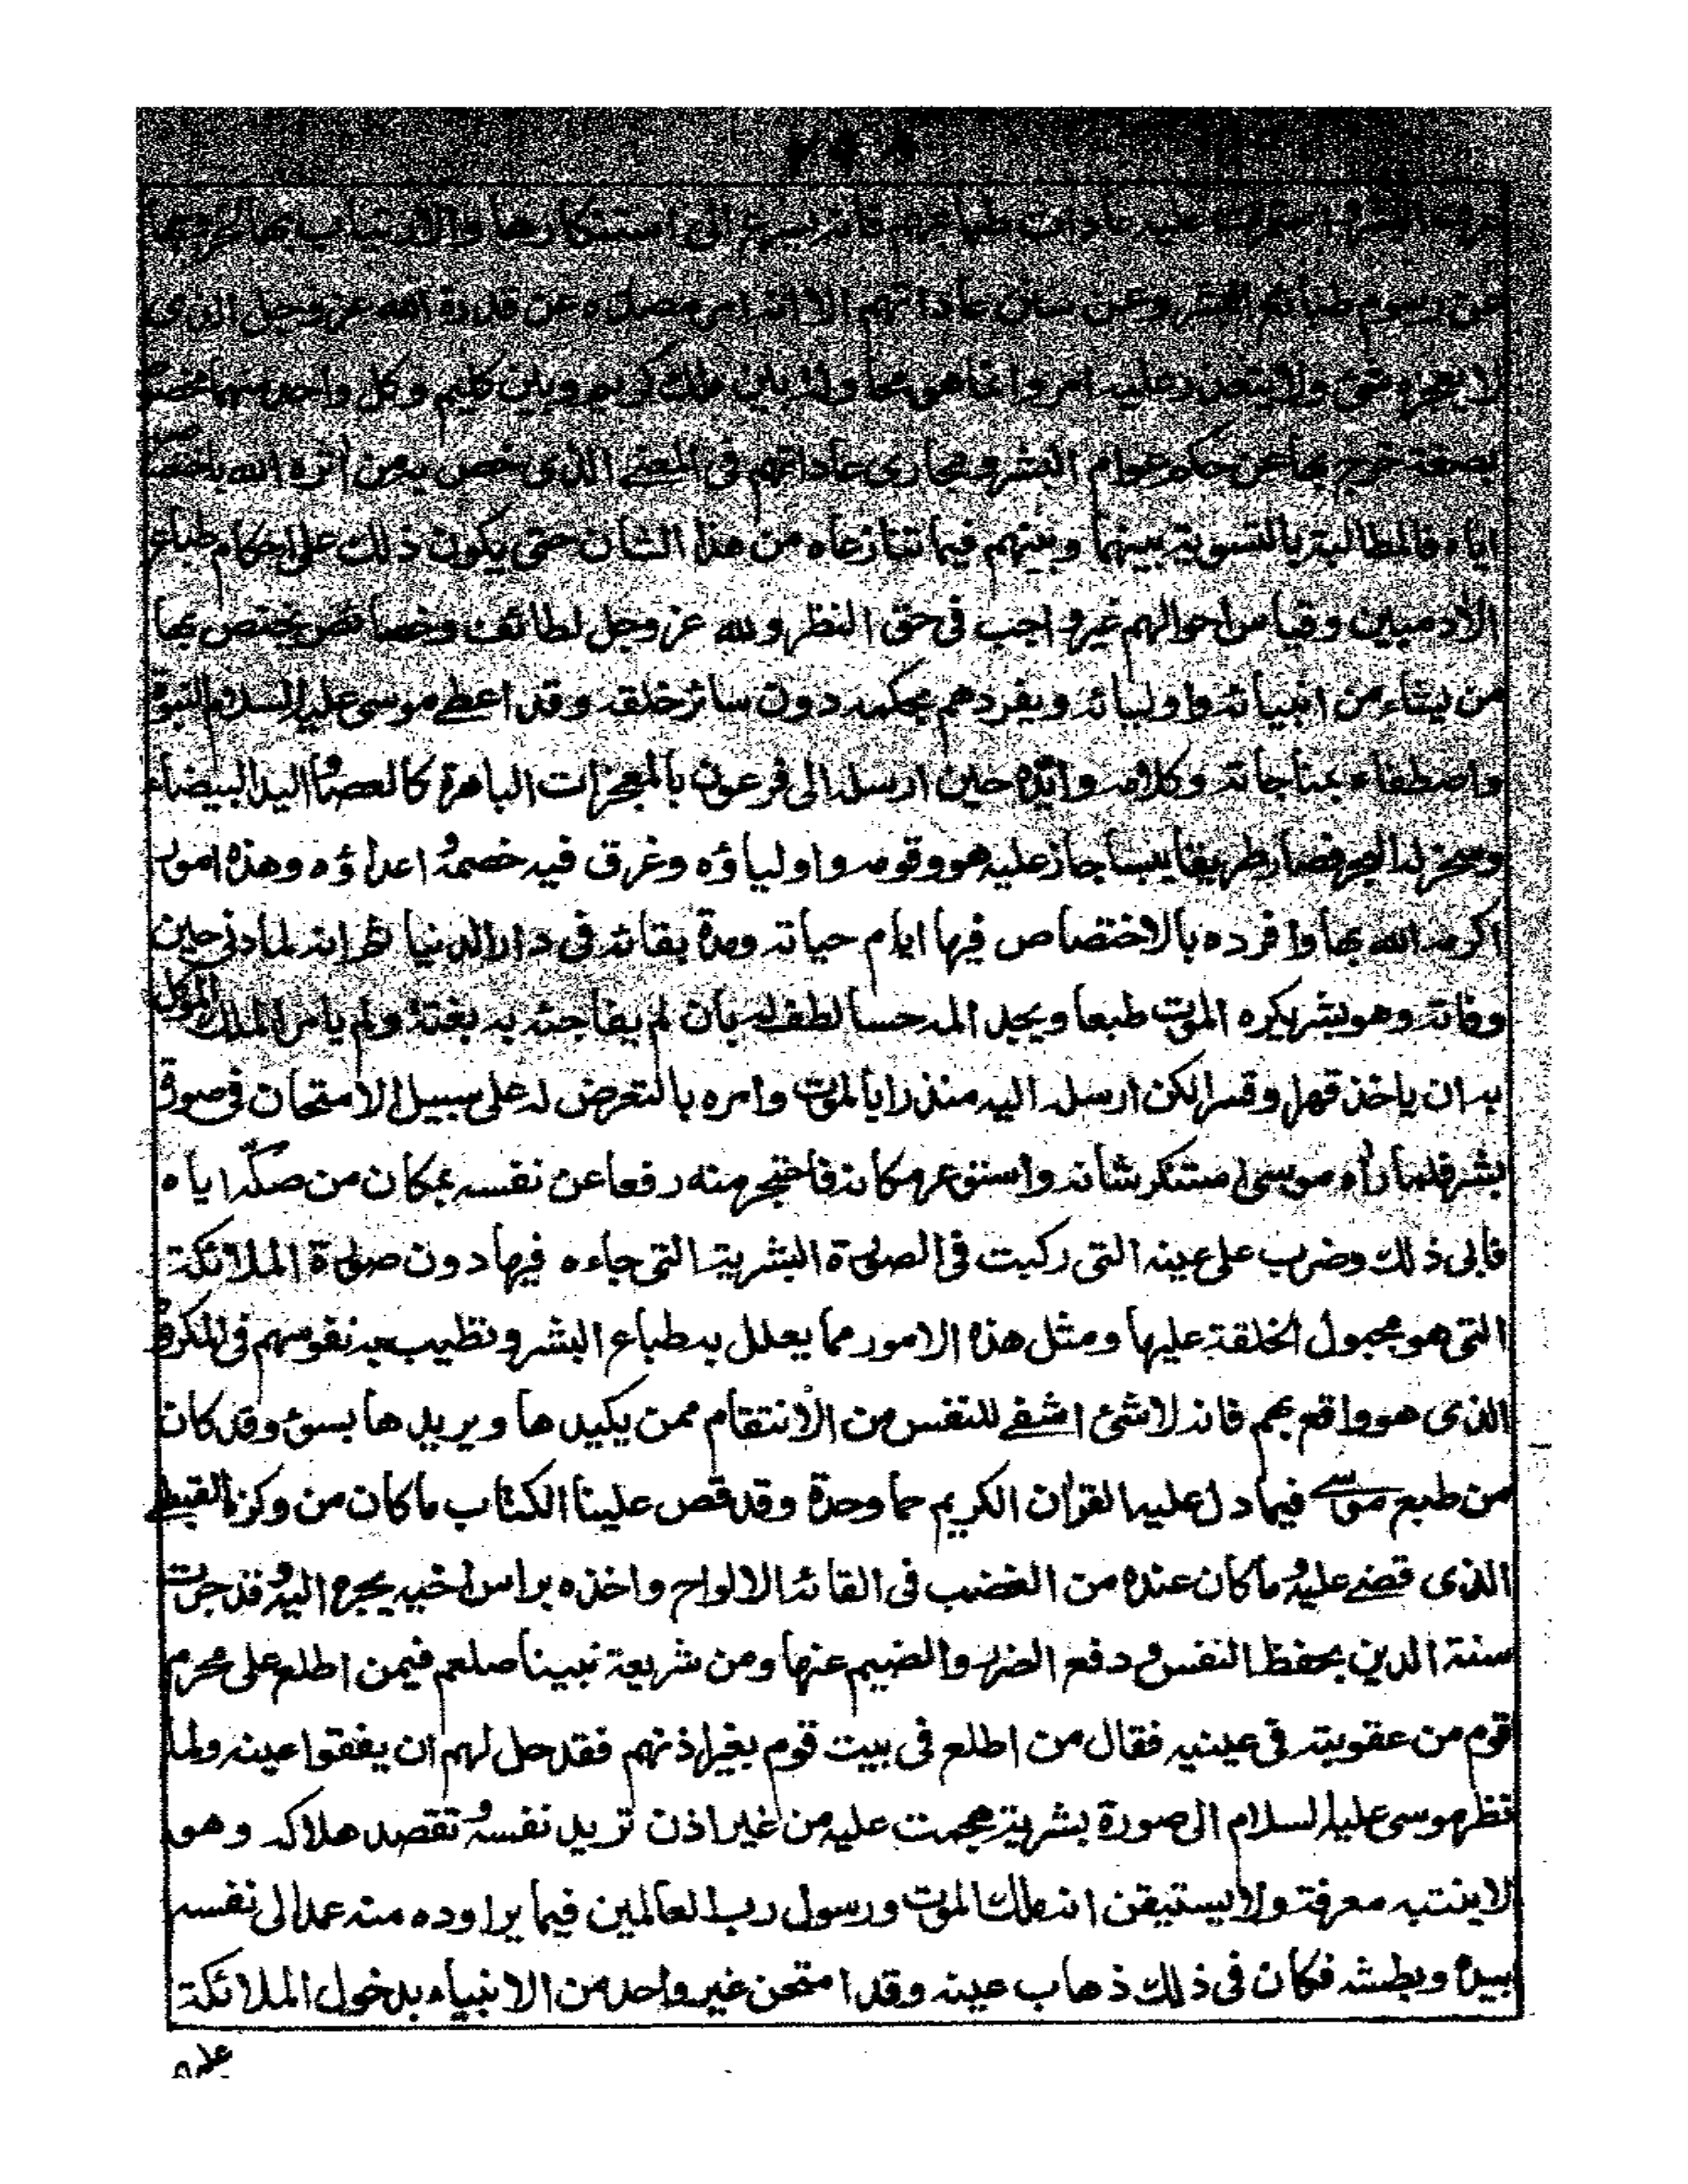 استمرت عليه عادات طباعهم فانه يسرع الى استنكارها والارتياب بها لخروجها
عن رسوم طبائع البشر وعن سنن عاداتهم الا انه امر مصدره عن قدرة الله عز وجل الذى
لا يعجزه شئ ولا يتعذر عليه امر وانما هو محاولة بين ملك كريم وبين كليم وكل واحد منهما مخصوص
بصفة خرج بها عن حكم عوام البشر ومجارى عاداتهم فى المعنى الذى خص به من اثره الله باختصاصه
اياه فالمطالبة بالتسوية بينهما وبينهم فيما تنازعاه من هذا الشأن حتى يكون ذلك على احكام طباع
الآدميين وقياس احوالهم غير واجب فى حق النظر ولله عز وجل لطائف وخصائص يختص بها
من يشاء من انبيائه واوليائه ويفردهم بحكمه دون سائر خلقه وقد اعطى موسى عليه السلام النبوة
واصطفاه بمناجاته وكلامه وايّده حين ارسله الى فرعون بالمعجزات الباهرة كالعصا واليد البيضاء
وسخر له البحر فصار طريقا يبسا جاز عليه هو وقومه واولياؤه وغرق فيه خصمه واعداؤه وهذه امور
اكرمه الله بها وافرده بالاختصاص فيها ايام حياته ومدة بقائه فى دار الدنيا ثم انه لما دنى حين
وفاته وهو بشر يكره الموت طبعا ويجد المه حسا لطف له بان لم يفاجئه به بغتة ولم يامر الملك الموكل
به ان ياخذه قهرا وقسرا لكن ارسله اليه منذرا بالموت وامره بالتعرض له على سبيل الامتحان فى صورة
بشر فلما رأه موسى استنكر شانه واستوعر مكانه فاحتجر منه دفعا عن نفسه بمكان من صكّه اياه
فابى ذلك وضرب على عينه التى ركبت فى الصورة البشرية التى جاءه فيها دون صورة الملائكة
التى هو مجبول الخلقة عليها ومثل هذه الامور مما يعلل به طباع البشر وتطيب به نفوسهم فى المكروه
الذى هو واقع بهم فانه لا شئ اشفى للنفس من الانتقام ممن يكيدها ويريدها بسوء وقد كان
من طبع موسى فيما دل عليه القرآن الكريم حما وحدة وقد قص علينا الكتاب ما كان من وكزه القبطى
الذى قضى عليه وما كان عنده من الغضب فى القائه الالواح واخذه براس اخيه يجره اليه وقد جرت
سنة الدين بحفظ النفس ودفع الضرر والضيم عنها ومن شريعة نبينا صلعم فيمن اطلع على محرم
قوم من عقوبته فى عينيه فقال من اطلع فى بيت قوم بغير اذنهم فقد حل لهم ان يفقئوا عينه ولما
نظر موسى عليه السلام الى صورة بشرية هجمت عليه من غير اذن تريد نفسه وتقصد هلاكه وهو
لا ينتبه معرفة ولا يستيقن انه ملك الموت ورسول رب العالمين فيما يراوده منه عمد الى نفسه
بيده وبطشه فكان فى ذلك ذهاب عينه وقد امتحن غير واحد من الانبياء بدخول الملائكة
عليهم